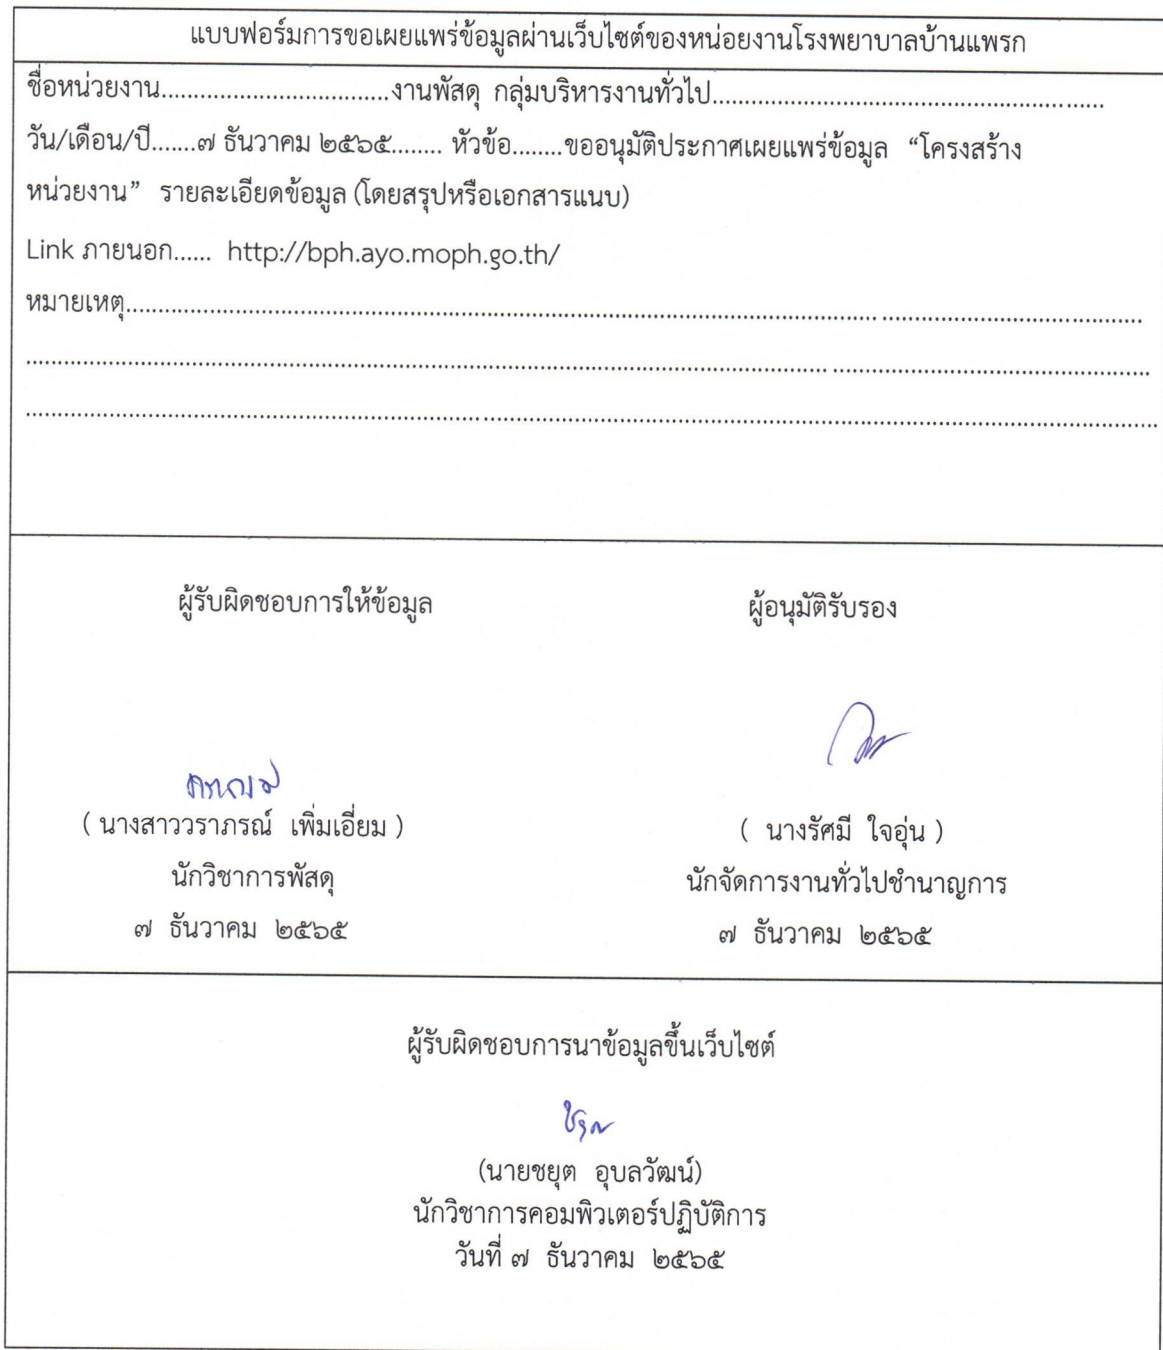 แบบฟอร์มการขอเผยแพร่ข้อมูลผ่านเว็บไซต์ของหน่อยงานโรงพยาบาลบ้านแพรก
ชื่อหน่วยงาน...................................งานพัสดุ กลุ่มบริหารงานทั่วไป............................................................
วัน/เดือน/ปี.......๗ ธันวาคม ๒๕๖๕........ หัวข้อ........ขออนุมัติประกาศเผยแพร่ข้อมูล “โครงสร้าง
หน่วยงาน” รายละเอียดข้อมูล (โดยสรุปหรือเอกสารแนบ)
Link ภายนอก...... http://bph.ayo.moph.go.th/
หมายเหตุ............................................................................................................................................
ผู้รับผิดชอบการให้ข้อมูล
ผู้อนุมัติรับรอง
( นางสาววราภรณ์ เพิ่มเอี่ยม )
( นางรัศมี ใจอุ่น )
นักวิชาการพัสดุ
นักจัดการงานทั่วไปชำนาญการ
๗ ธันวาคม ๒๕๖๕
๗ ธันวาคม ๒๕๖๕
ผู้รับผิดชอบการนาข้อมูลขึ้นเว็บไซต์
(นายชยุต อุบลวัฒน์)
นักวิชาการคอมพิวเตอร์ปฏิบัติการ
วันที่ ๗ ธันวาคม ๒๕๖๕